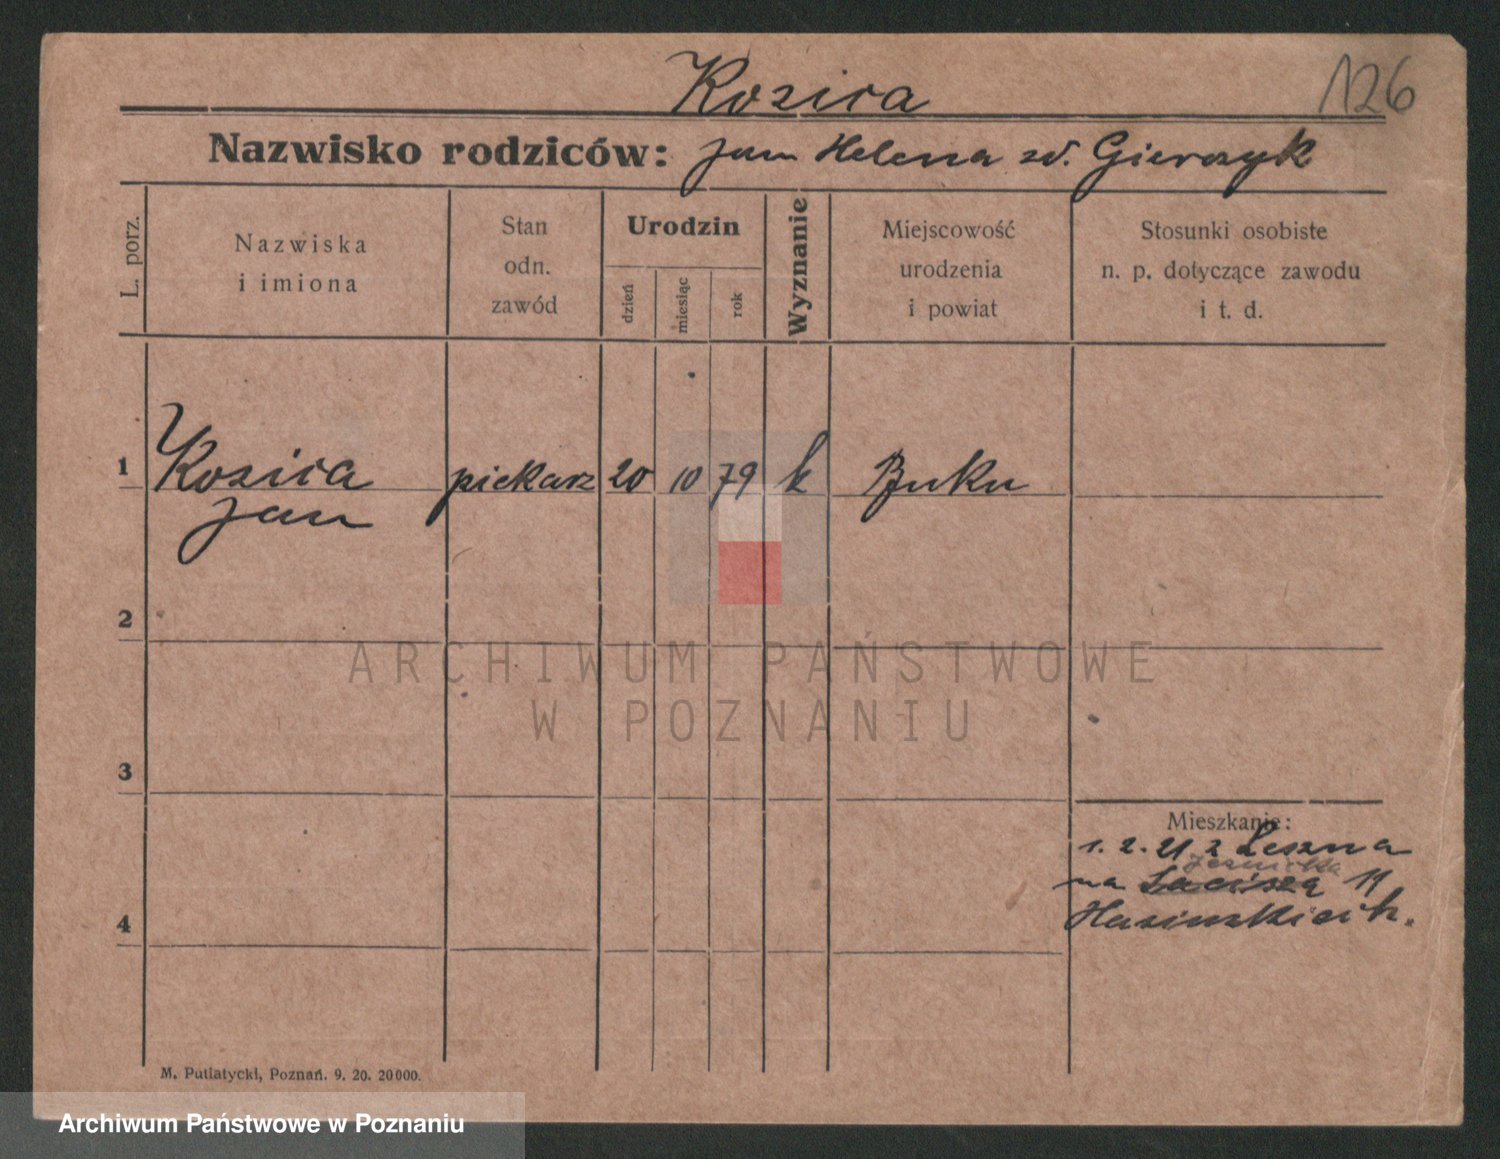 126
Kozica
Nazwisko rodziców: Jan Helena zd. Gierczyk
L. porz.
Nazwiska
i imiona
Stan
odn.
zawód
Urodzin
dzień
miesiąc
rok
Wyznanie
Miejscowość
urodzenia
i powiat
Stosunki osobiste
n. p. dotyczące zawodu
i t. d.
1 Kozica piekarz 20 10 79 k Buku
Jan
2
3
4
ARCHIWUM PAŃSTWOWE
W POZNANIU
Mieszkanie:
1. 2. 21 z Leszna
na 11
M. Putiatycki, Poznań. 9. 20. 20000.
Archiwum Państwowe w Poznaniu